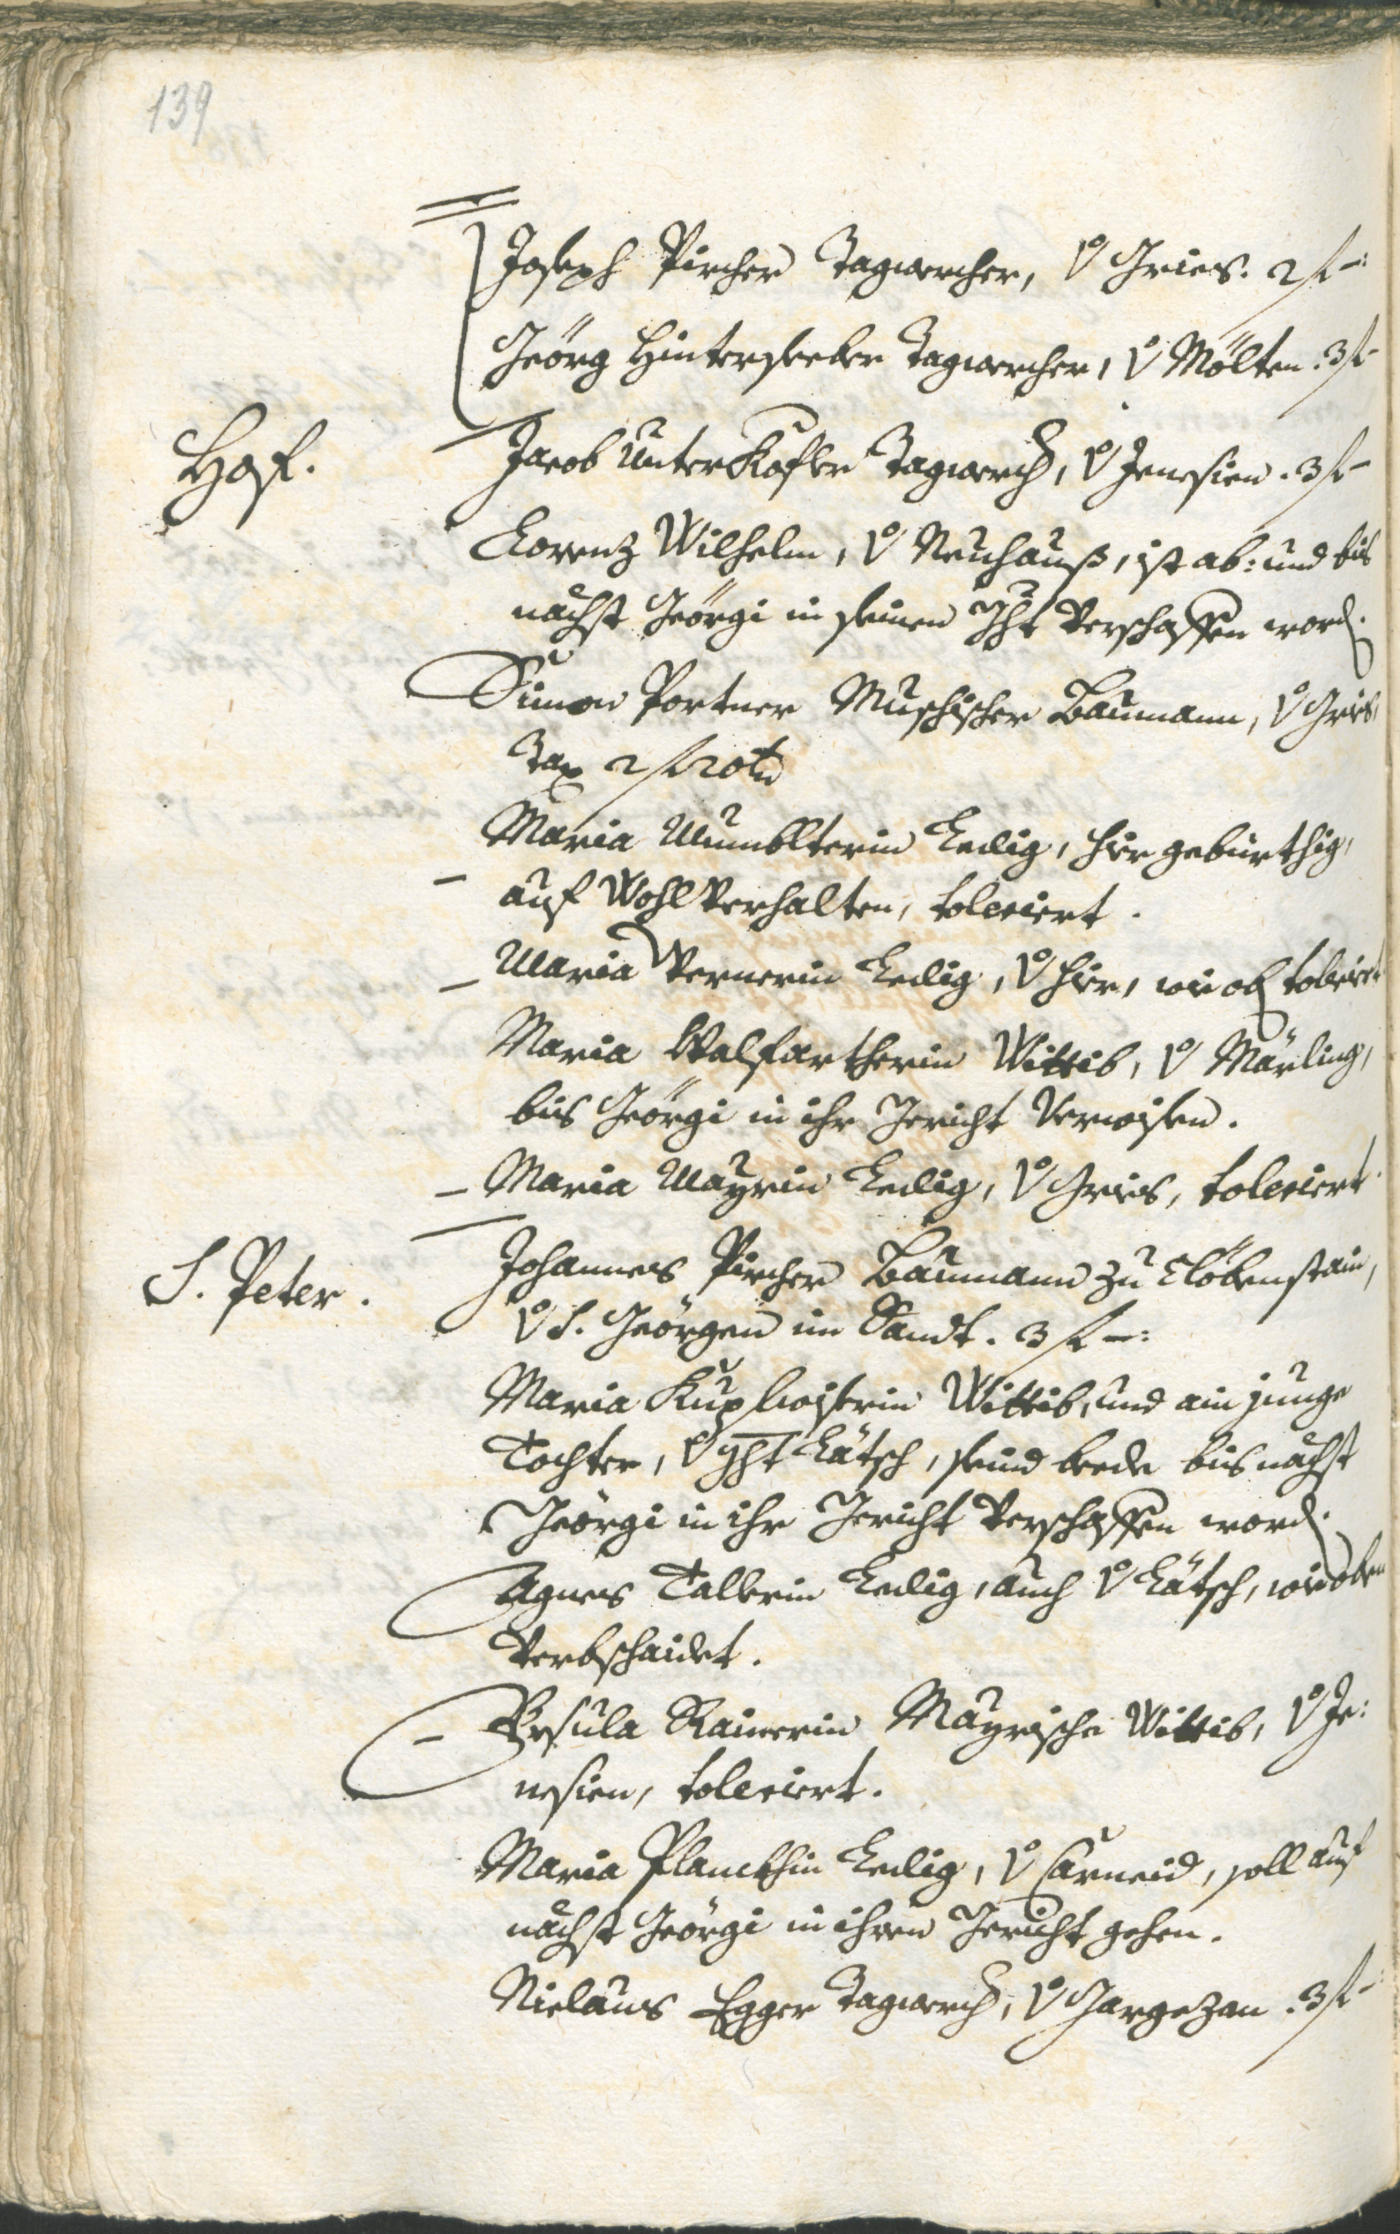 139
Joseph Pircher Tagwercher, V Gries. 2 f –:
Geörg Hinterseeber Tagwercher, V Mölten. 3 f –
Hof.
Jacob Unterkofler Tagwerch, V Jenesien. 3 f –
Lorenz Wilhelm, V Neuhauß, ist ab: und bis
nächst Geörgi in seinen Ght verschaffen word.
Simon Portner Baumann, V Gries,
Tax 2 f 20 tn
Maria Mumblterin Ledig, hir gebürthig,
auf Wohlverhalten, toleriert.
Maria Vernerin Ledig, V hir, wie ob toleriert
Maria Walfartherin Wittib, V Märling,
bis Geörgi in ihr Gericht verwisen.
Maria Mayrin Ledig, V Gries, toleriert.
S. Peter.
Johannes Pircher Baumann zu Clobenstain,
V S. Geörgen im Sandt. 3 f –:
Maria Wittib, und ain junge
Tochter, V ght Lätsch, seind beede bis nächst
Geörgi in ihr Gericht verschaffen word.
Agnes Tallerin Ledig, auch V Lätsch, wie oben
verbschaidet.
Ursula Rainerin Mayrische Wittib, V Je:
nesien, toleriert.
Maria Planckhin Ledig, V Carneid, soll auf
nächst Geörgi in ihren Gericht gehen.
Niclaus Egger Tagwerch, V Gargezan. 3 f –